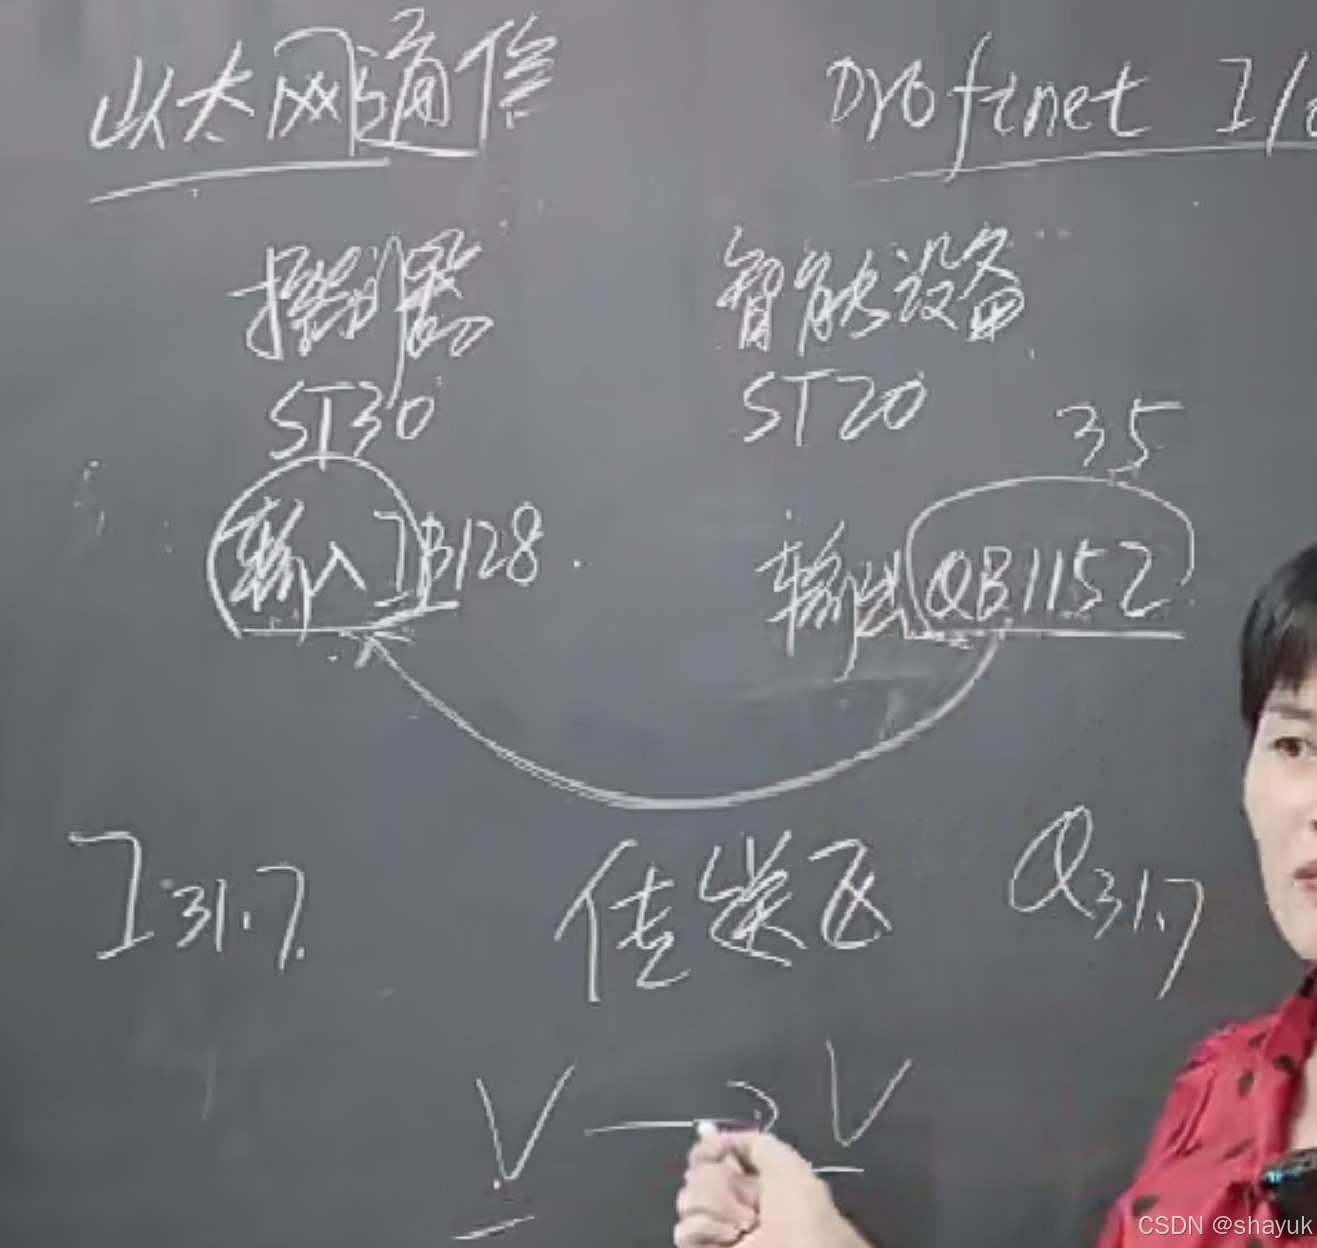 以太网通信 Profinet I/o
控制器 智能设备
ST30 ST20
35
输入 IB128. 输出 QB1152
I31.7 传送区 Q31.7
V → V
CSDN @shayuk